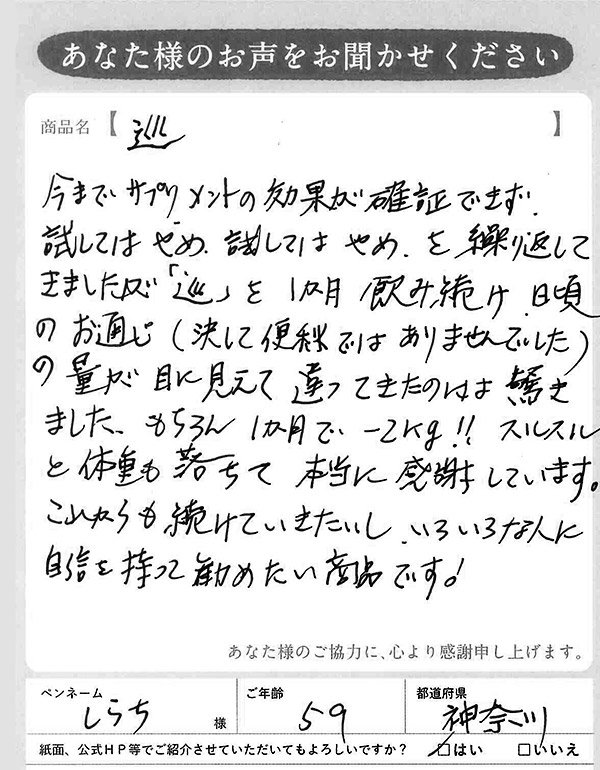 あなた様のお声をお聞かせください
商品名【 巡 】
今までサプリメントの効果が確証できず、
試してはやめ、試してはやめ、を繰り返して
きましたが「巡」を1カ月飲み続け、日頃
のお通じ(決して便秘ではありませんでした)
の量が目に見えて違ってきたのには驚き
ました、もちろん1カ月で-2kg!!スルスル
と体重も落ちて本当に感謝しています。
これからも続けていきたいし、いろいろな人に
自信を持って勧めたい商品です!
あなた様のご協力に、心より感謝申し上げます。
ペンネーム しらち 様 ご年齢 59 都道府県 神奈川
紙面、公式HP等でご紹介させていただいてもよろしいですか? ☑はい □いいえ